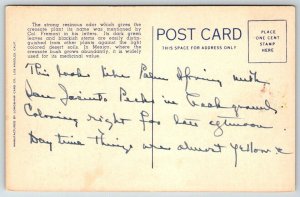 The strong resinous odor which gives the
creosote plant its name was mentioned by
Col. Fremont in his letters. Its dark green
leaves and blackish stems are easily distin-
guished from other plants against the light
colored desert soils. In Mexico, where the
creosote bush grows abundantly, it is widely
used for its medicinal value.
POST CARD
THIS SPACE FOR ADDRESS ONLY
PLACE
ONE CENT
STAMP
HERE
This looks like Palm Springs with
San Jacinto Peaks in background.
Coloring right for late afternoon
Day time things are almost yellow